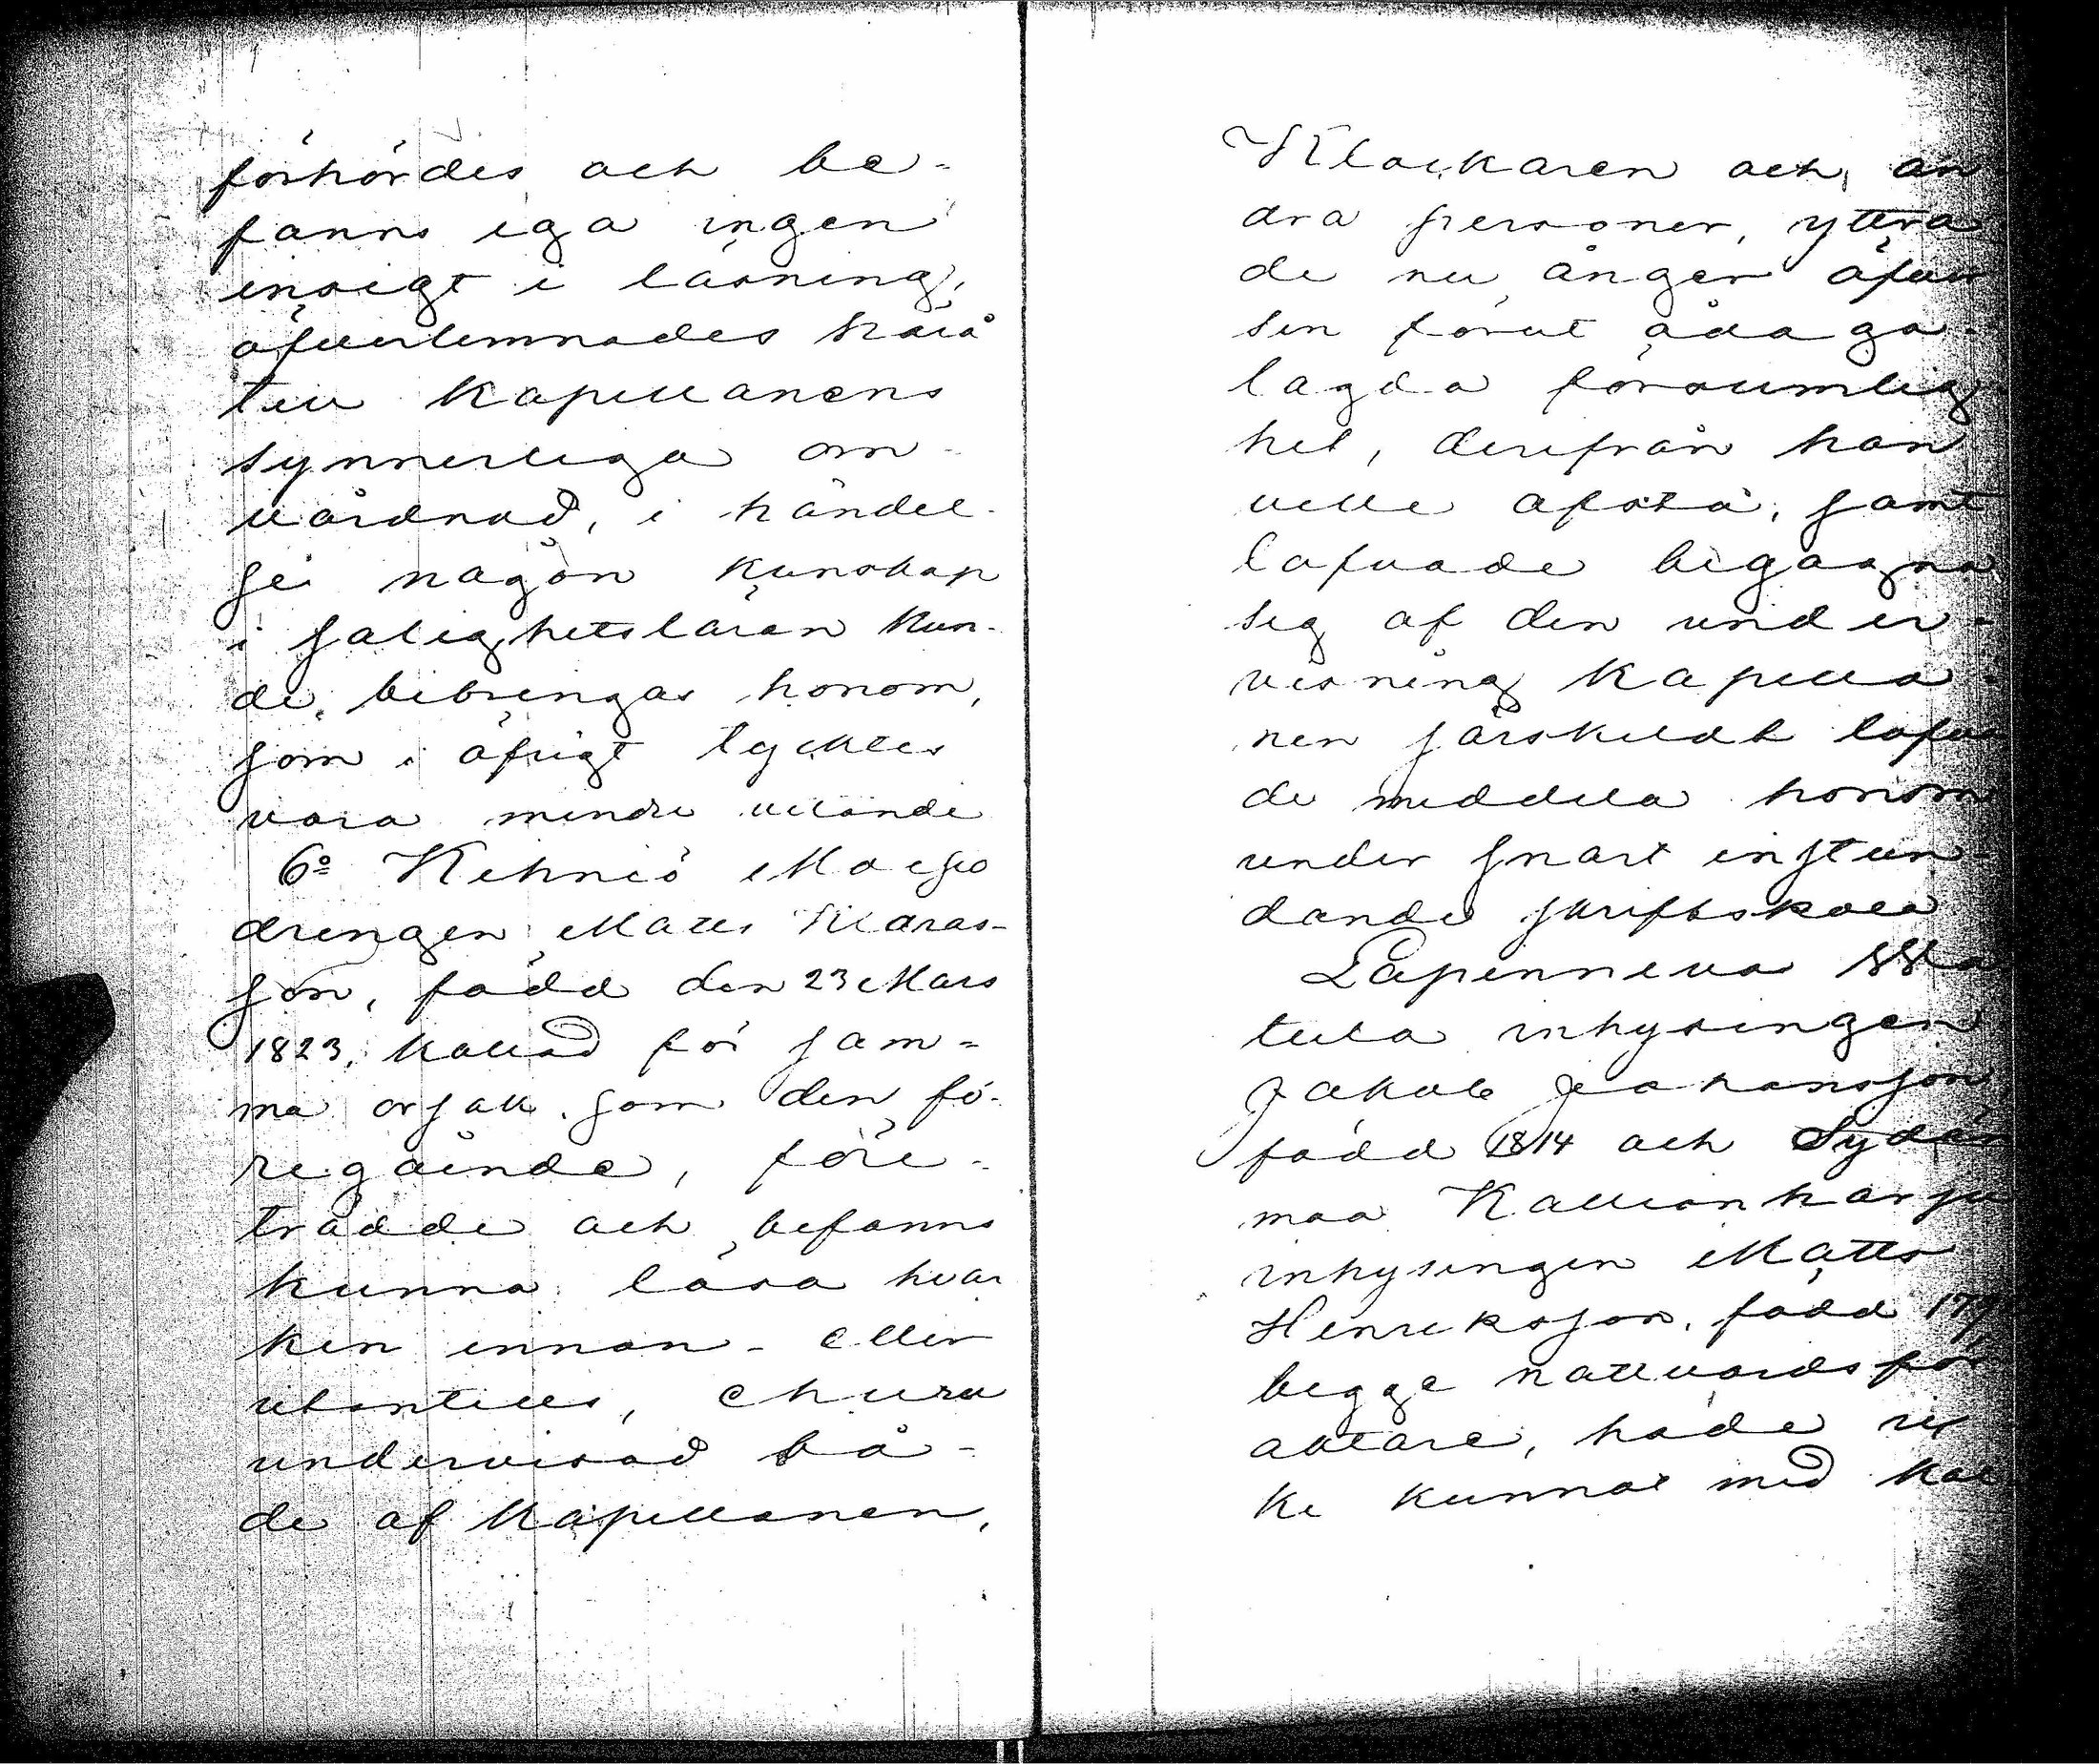 förhördes och be-
fanns ega ingen
insigt i läsning,
öfverlemnades härå
till Kapellanens
synnerliga om-
vårdnad, i händel-
se någon kunskap
i salighetsläran kun-
de bibringas honom,
som i öfrigt tycktes
vara mindre vetande
6º Kihniö Moisio
drengen Matts Klaras-
son, född den 23 Mars
1823, kallad för sam-
ma orsak som den fö-
regående, före-
trädde och befanns
kunna läsa hvar
ken innan- eller
utantill, ehuru
undervisad bå-
de af Kapellanen,
Klockaren och an
dra personer, yttra
de nu ånger öfver
sin förut ådaga-
lagda försumlig
het, derifrån han
ville afstå, samt
lofvade begagna
sig af den under-
visning Kapella-
nen särskildt lofva
de meddela honom
under snart instun-
dande skriftskola
Lapinneva
tula inhysingen
Jakob Johansson
född 1814 och Sydän
maa Kallionharju
inhysingen Matts
Henriksson, född 179
begge nattvardsför
aktare, hade ic
ke kunnat med kal